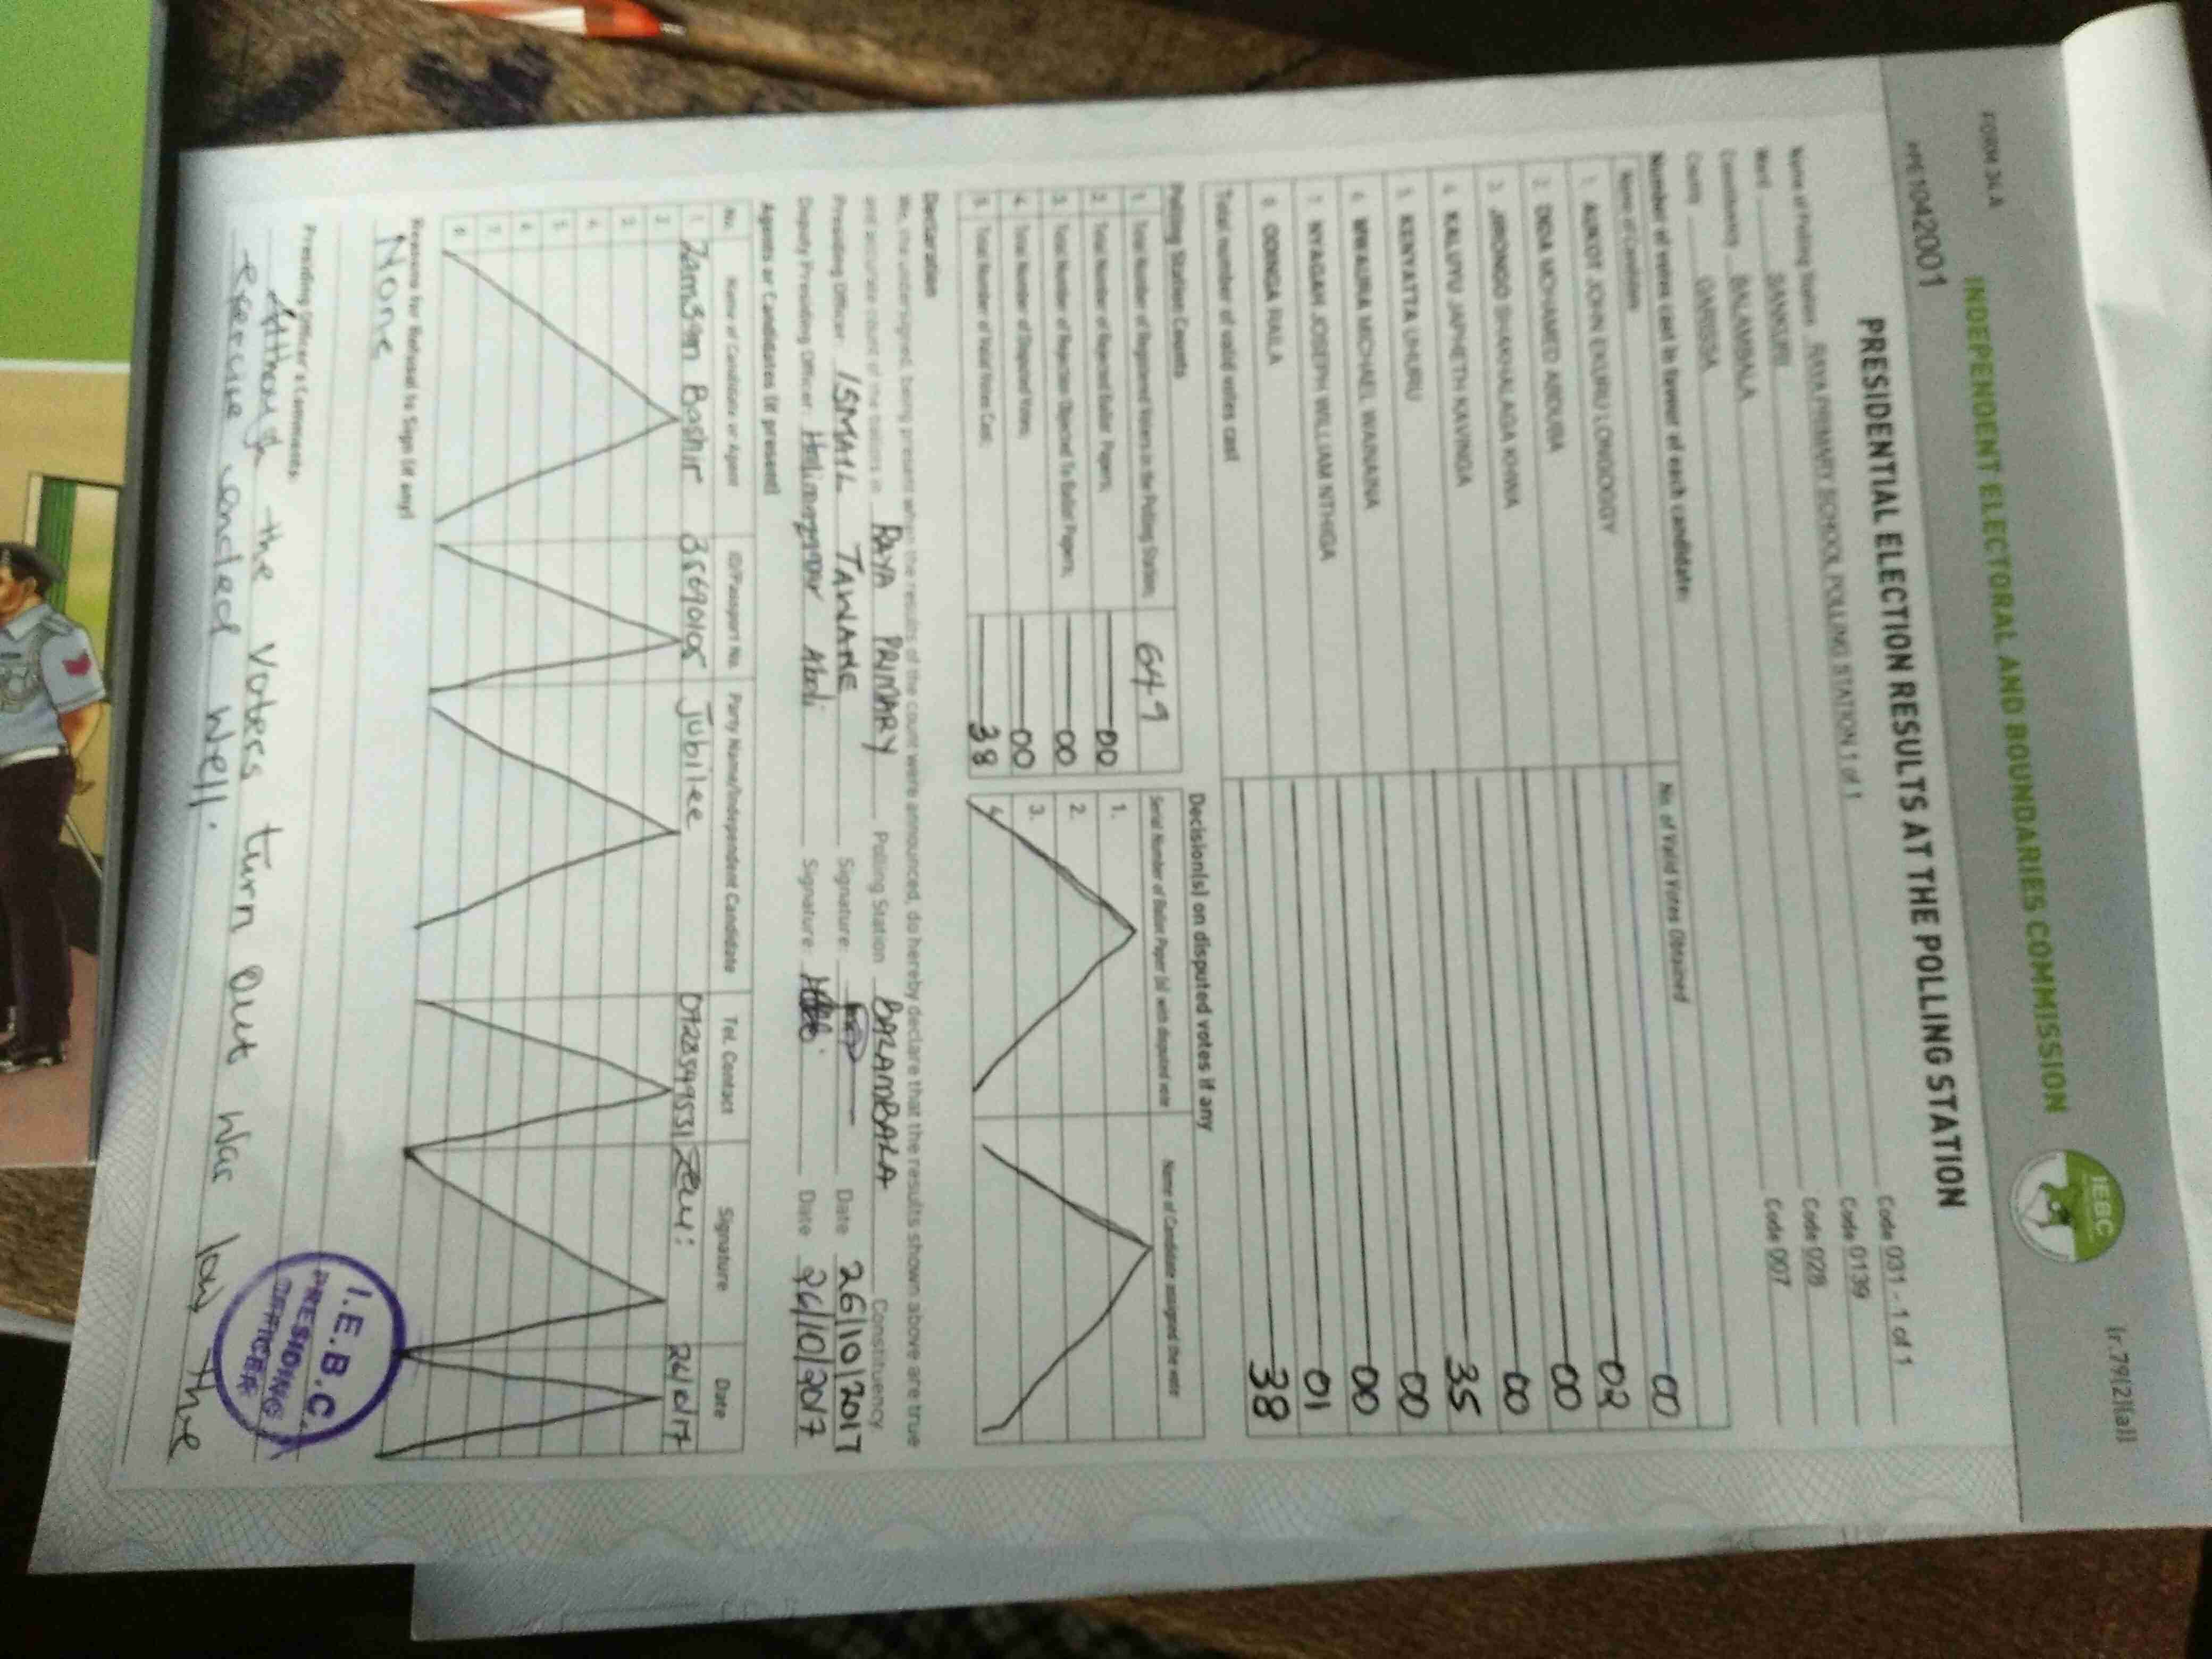 FORM 34 A
(r.79(2)(a))
INDEPENDENT ELECTORAL AND BOUNDARIES COMMISSION
IEBC
1042001
PRESIDENTIAL ELECTION RESULTS AT THE POLLING STATION
Name of Polling Station RAYA PRIMARY SCHOOL POLLING STATION 1 of 1 Code 031 - 1 of 1
Ward SANKURI Code 0139
Constituency BALAMBALA Code 028
County GARISSA Code 007
Number of votes cast in favour of each candidate:
Name of Candidate No. of Valid Votes Obtained
1. AUKOT JOHN EKURU LONGOGGY 00
2. DIDA MOHAMED ABDUBA 02
3. JIRONGO SHAKHALAGA KHWA 00
4. KALUYU JAPHETH KAVINGA 00
5. KENYATTA UHURU 35
6. MWAURA MICHAEL WAINAINA 00
7. NYAGAH JOSEPH WILLIAM NTHIGA 00
8. ODINGA RAILA 01
Total number of valid votes cast 38
Polling Station Counts
1. Total Number of Registered Voters in the Polling Station: 649
2. Total Number of Rejected Ballot Papers: 00
3. Total Number of Rejection Objected To Ballot Papers: 00
4. Total Number of Disputed Votes: 00
5. Total Number of Valid Votes Cast: 38
Decision(s) on disputed votes if any
Serial Number of Ballot Paper (s) with disputed vote Name of Candidate assigned the vote
1.
2.
3.
4.
Declaration
We, the undersigned, being present when the results of the count were announced, do hereby declare that the results shown above are true
and accurate count of the ballots in RAYA PRIMARY Polling Station BALAMBALA Constituency
Presiding Officer: ISMAIL TAWANE Signature: Date 26/10/2017
Deputy Presiding Officer: Abdi Signature: Date 26/10/2017
Agents or Candidates (if present)
No. Name of Candidate or Agent ID/Passport No. Party Name/Independent Candidate Tel. Contact Signature Date
1 Bashir Jubilee
2
3
4
5
6
7
8
Reasons for Refusal to Sign (if any)
None
Presiding Officer's Comments
Although the voters turn out was low the
exercise ended well.
I.E.B.C.
PRESIDING
OFFICER